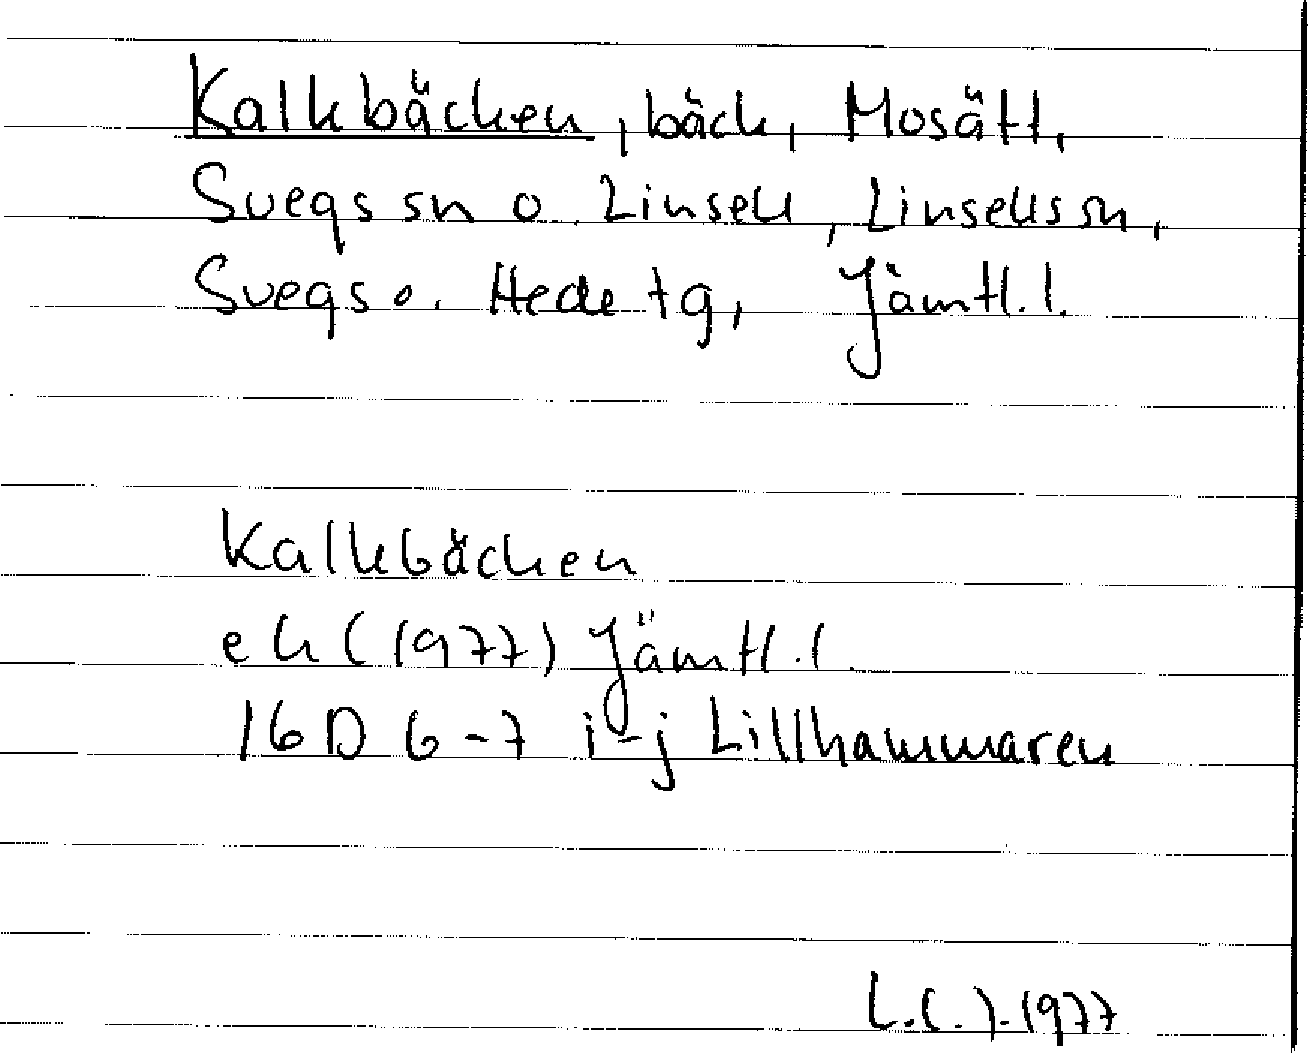 Kalkbäcken, bäck, Mosätt,
Svegs sn o. Linsell, Linsells sn,
Svegs o. Hede tg, Jämtl. l.
Kalkbäcken
ek (1977) Jämtl. l.
16 D 6-7 i-j Lillhammaren
1977